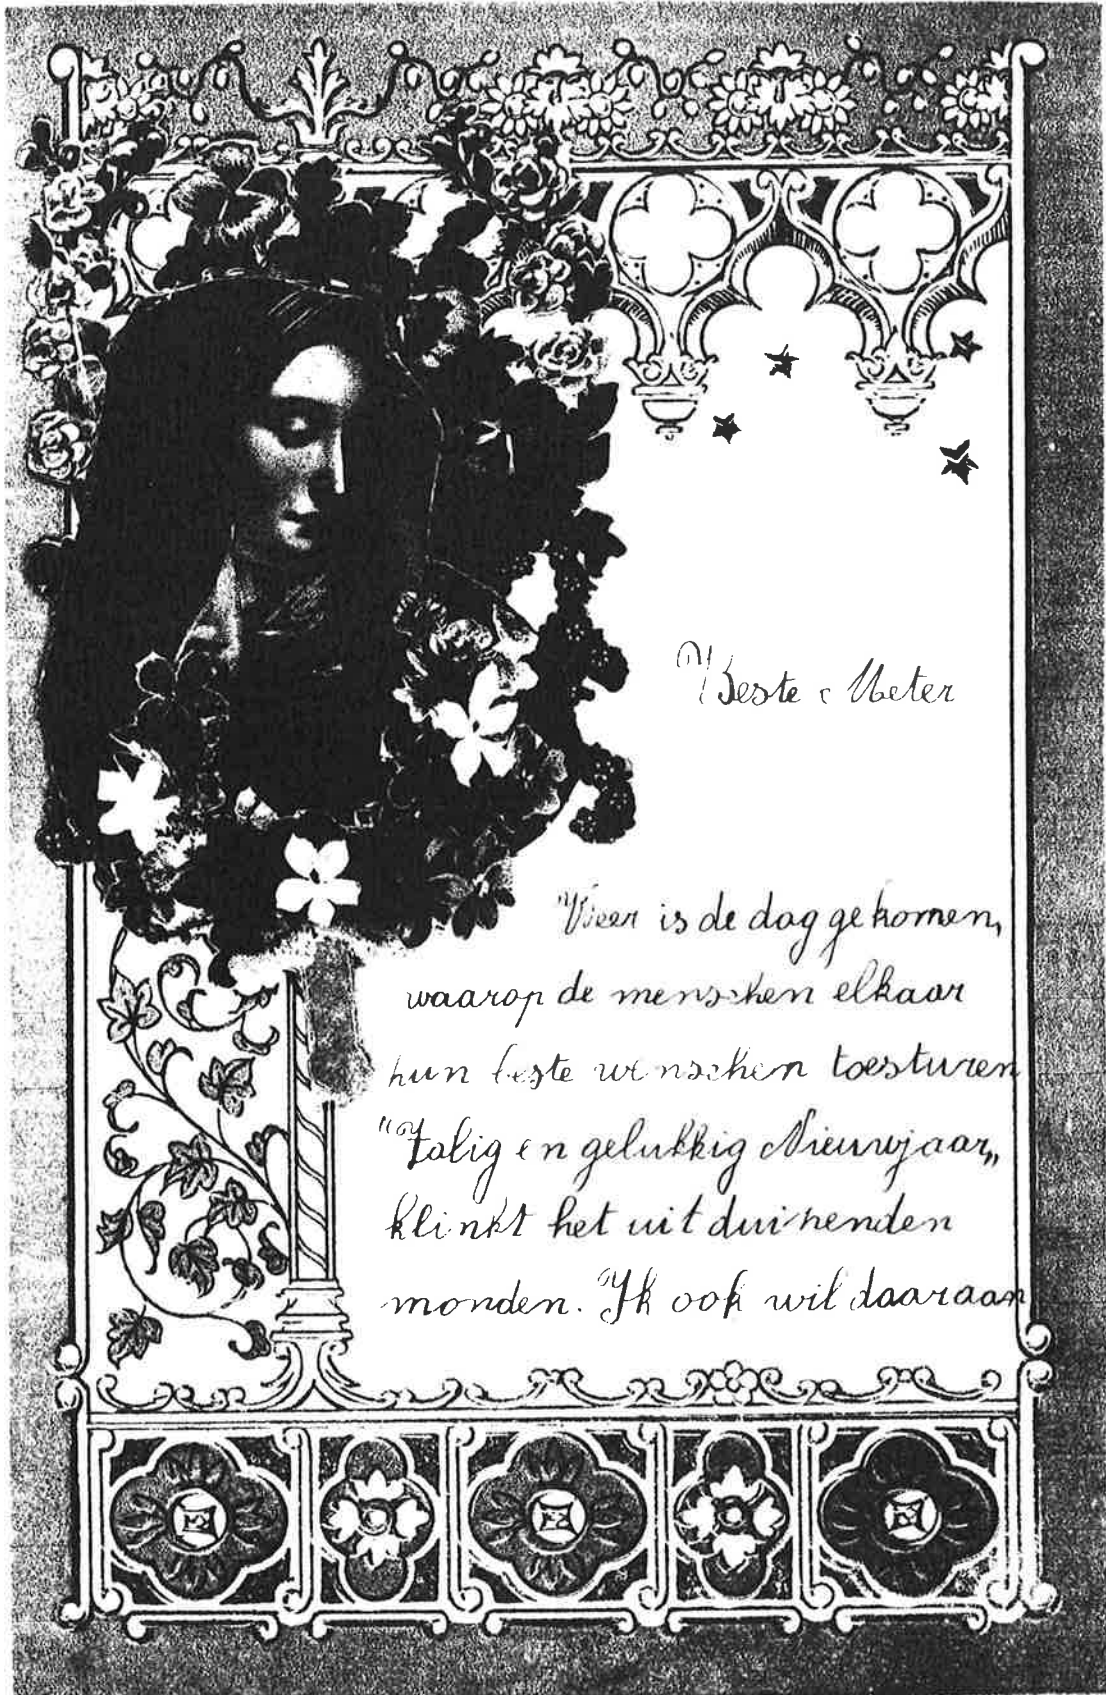 Beste Meter
Weer is de dag gekomen,
waarop de menschen elkaar
hun beste wenschen toesturen
"Zalig en gelukkig Nieuwjaar„
klinkt het uit duizenden
monden. Ik ook wil daaraan